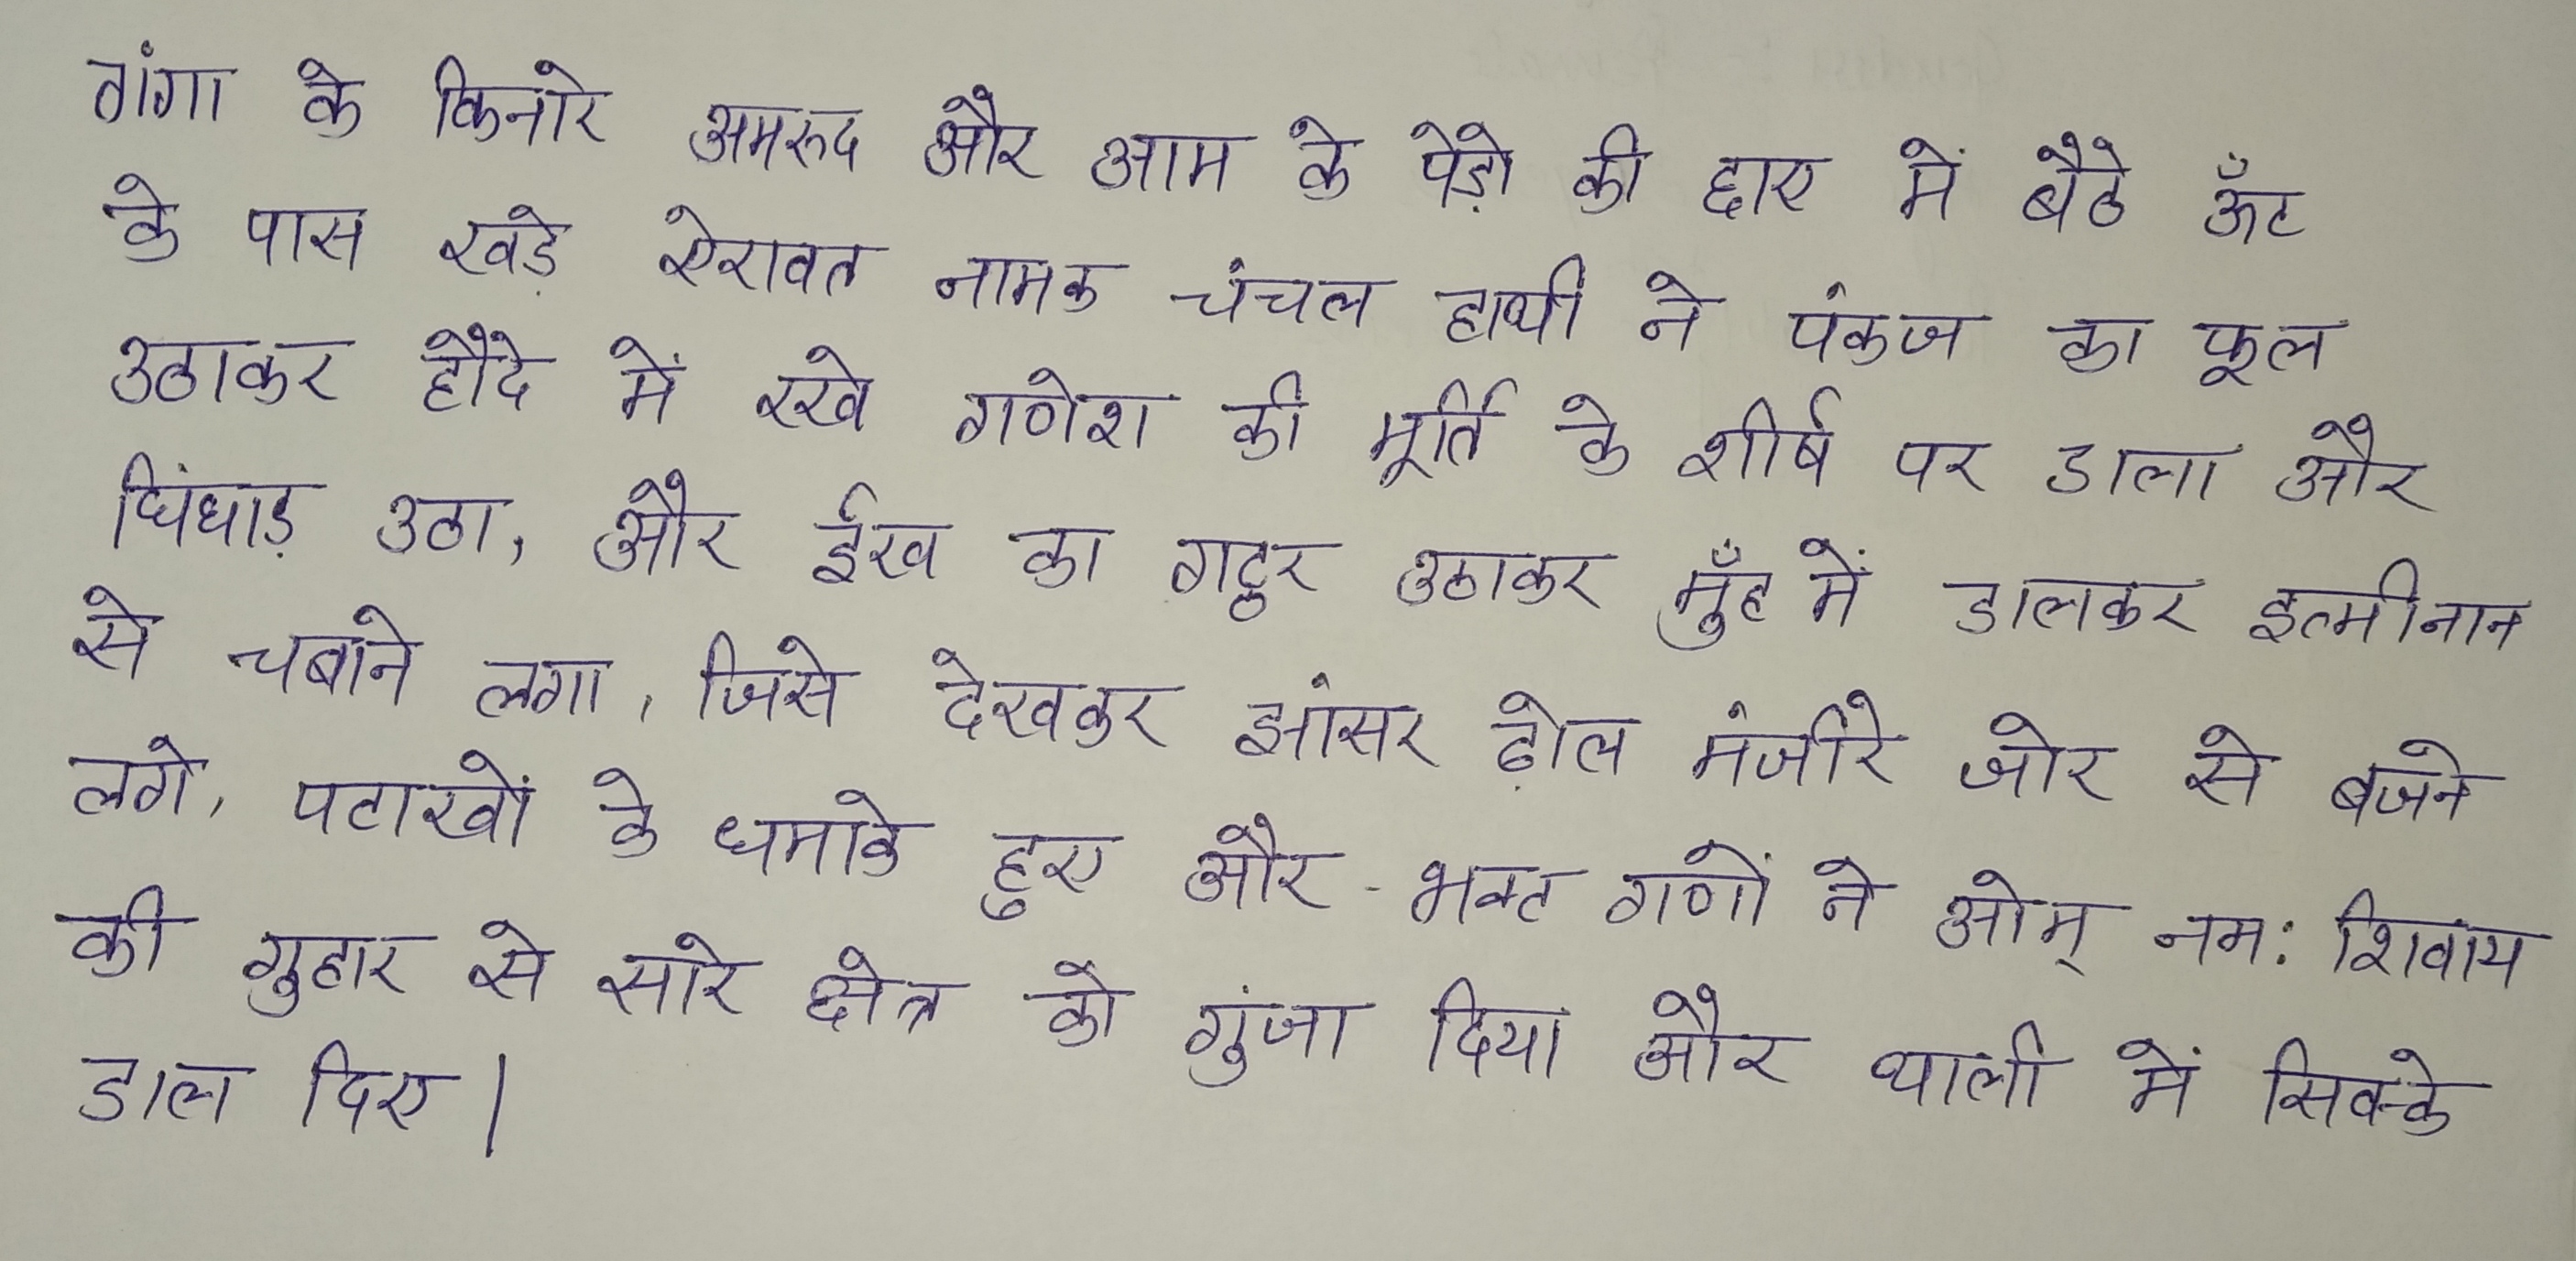 गंगा के किनारे अमरुद और आम के पेड़ो की छाए में बैठे ऊँट
के पास खड़े ऐरावत नामक चंचल हाथी ने पंकज का फूल
उठाकर हौदे में रखे गणेश की मूर्ति के शीर्ष पर डाला और
घिंघाड़ उठा, और ईख का गट्ठर उठाकर मुँह में डालकर इत्मीनान
से चबाने लगा, जिसे देखकर झांसर ढ़ोल मंजीरे जोर से बजने
लगे, पटाखों के धमाके हुए और भक्त गणों ने ओम् नम: शिवाय
की गुहार से सारे क्षेत्र को गुंजा दिया और थाली में सिक्के
डाल दिए।